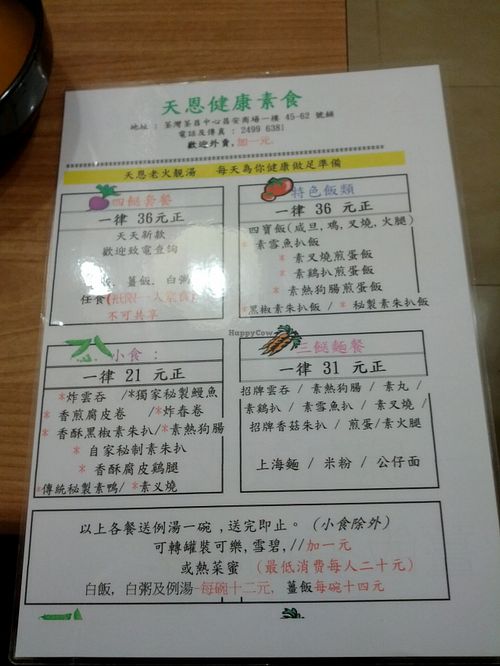 天恩健康素食
地址 : 荃灣荃昌中心昌安商場一樓 45-62 號鋪
電話及傳真 : 2499 6381
歡迎外賣,加一元.
天恩老火靚湯 每天為你健康做足準備
四餸套餐
一律 36元正
天天新款
歡迎致電查詢
飯、薑飯、白粥
任食(祇限一人享食)
不可共享
特色飯類
一律 36 元正
四寶飯(咸旦,鴙,叉燒,火腿)
* 素雪魚扒飯
* 素叉燒煎蛋飯
* 素鷄扒煎蛋飯
* 素熱狗腸煎蛋飯
*黑椒素朱扒飯 / * 秘製素朱扒飯
小食 :
一律 21 元正
*炸雲吞 /*獨家秘製鰻魚
* 香煎腐皮卷 /*炸春卷
* 香酥黑椒素朱扒/*素熱狗腸
* 自家秘制素朱扒
* 香酥腐皮鷄腿
*傳統秘製素鴨/ *素叉燒
三餸麵餐
一律 31 元正
招牌雲吞 / 素熱狗腸 / 素丸 /
素鷄扒 / 素雪魚扒 / 素叉燒 /
招牌香菇朱扒 / 煎蛋/素火腿
上海麵 / 米粉 / 公仔面
HappyCow
以上各餐送例湯一碗 ,送完即止。(小食除外)
可轉罐裝可樂,雪碧,//加一元
或熱菜蜜 (最低消費每人二十元)
白飯, 白粥及例湯-每碗十二元, 薑飯每碗十四元